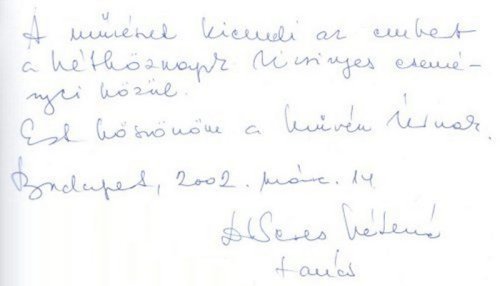 A művészet kiemeli az embert
a hétköznapok kicsinyes esemé-
nyei közül.
Ezt köszönöm a művész Úrnak.
Budapest, 2002. márc. 14
tanár